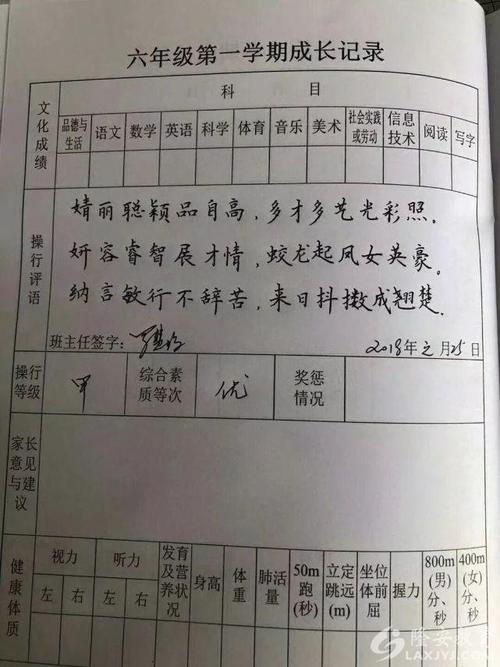 六年级第一学期成长记录
文化成绩
科 目
品德与生活 语文 数学 英语 科学 体育 音乐 美术 社会实践或劳动 信息技术 阅读 写字
操行评语
婧丽聪颖品自高,多才多艺光彩照。
妍容睿智展才情,蛟龙起凤女英豪。
纳言敏行不辞苦,来日抖擞成翘楚.
班主任签字:
2018年元月25日
操行等级 甲 综合素质等次 优 奖惩情况
家长意见与建议
健康体质
视力 听力 发育及营养状况 身高 体重 肺活量 50m跑(秒) 立定跳远(m) 坐位体前屈 握力 800m(男)分、秒 400m(女)分、秒
左 右 左 右
隆安教育
LAXJYJ.COM